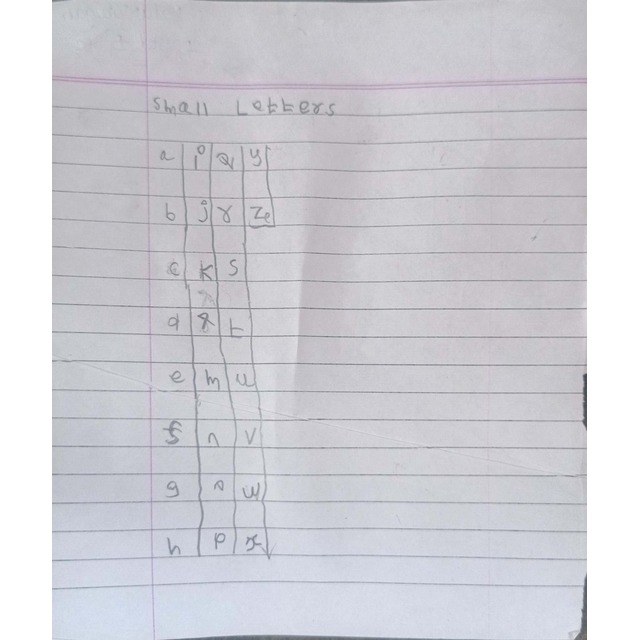 Small Letters
a i q y
b j r z
c k s
d l t
e m u
f n v
g o w
h p x